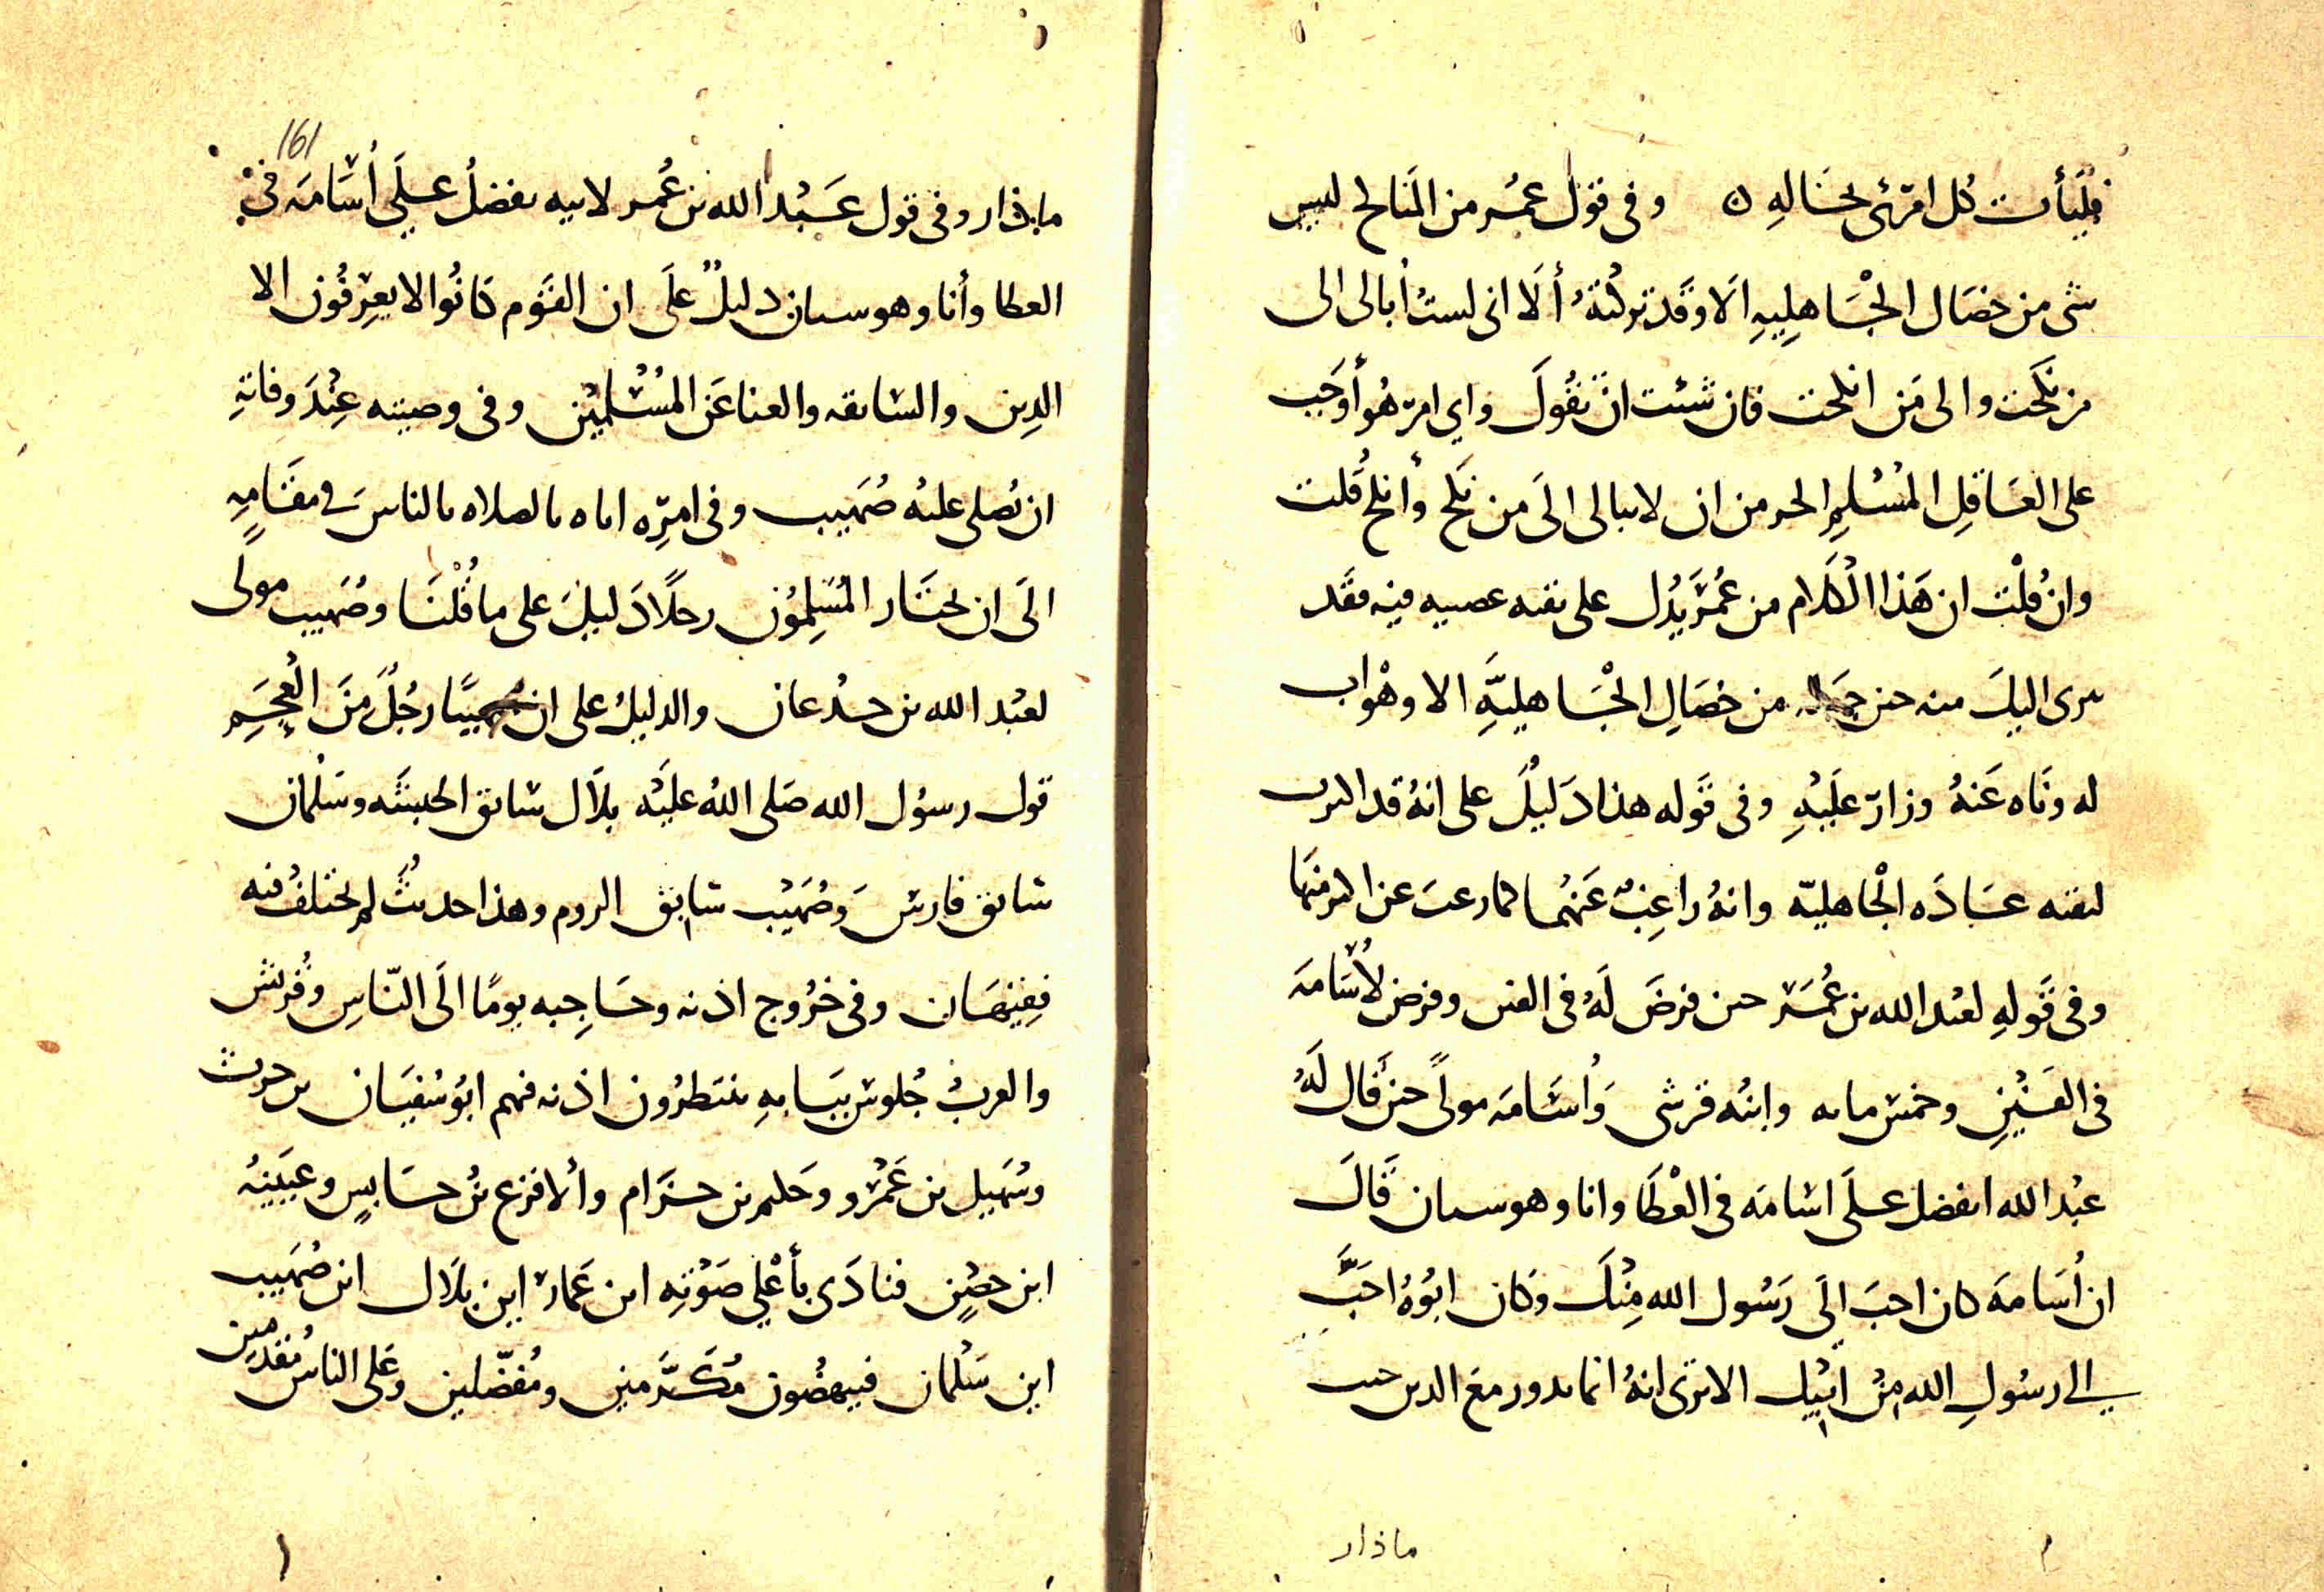 فليأت كل امرئ بحساله ٥ وفى قول عمر من المناكح ليس
شى من خصال الجاهلييه الا وقد تركته ألا انى لست أبالى الى
من نكحت والى من انكحت فان شئت ان تقول واي امر هو أوجب
على العاقل المسلم الحر من ان لا يبالى الى من نكح وأنكح قلت
وان قلت ان هذا الكلام من عمر يدل على بقيه عصبيه فيه فقد
برى اليك منه حين من خصال الجاهليه الا وهو اب
له وناه عنه وزار عليه وفى قوله هذا دليل على انه قد
لبقيه عباده الجاهليه وانه راغب عنهما كما رغب عن اكبر منها
وفى قوله لعبد الله بن عمر حين فرض له فى الفين وفرض لأسامه
فى الفين وخمس مايه وابنه قرشى وأسامه مولى حين قال له
عبد الله اتفضل على اسامه فى العطا وانا وهو سيان قال
ان أسامه كان احب الى رسول الله منك وكان ابوه احب
الى رسول الله من ابيك الا ترى انه انما يدور مع الدين حيث
ماذار
161
ماذار وفى قول عبد الله بن عمر لابيه تفضل على أسامه في
العطا وأنا وهو سيان دليل على ان القوم كانوا لا يعرفون الا
الدين والسابقه والغنا عن المسلمين وفى وصيته عند وفاته
ان يصلى عليه صهيب وفى امره اياه بالصلاه بالناس فى مقامه
الى ان يختار المسلمون رجلا دليل على ما قلنا وصهيب مولى
لعبد الله بن جدعان والدليل على ان صهيبا رجل من العجم
قول رسول الله صلى الله عليه بلال سابق الحبشه وسلمان
سابق فارس وصهيب سابق الروم وهذا حديث لم يختلف فيه
فقيهان وفى خروج اذنه وحاجبه يوما الى الناس وقريش
والعرب جلوس ببابه ينتظرون اذنه فيهم ابو سفيان بن حرب
وسهيل بن عمرو وحكيم بن حزام والاقرع بن حابس وعيينه
ابن حصن فنادى بأعلي صوته اين عمار اين بلال اين صهيب
اين سلمان فينهضون مكرمين ومفضلين وعلى الناس مقدمين